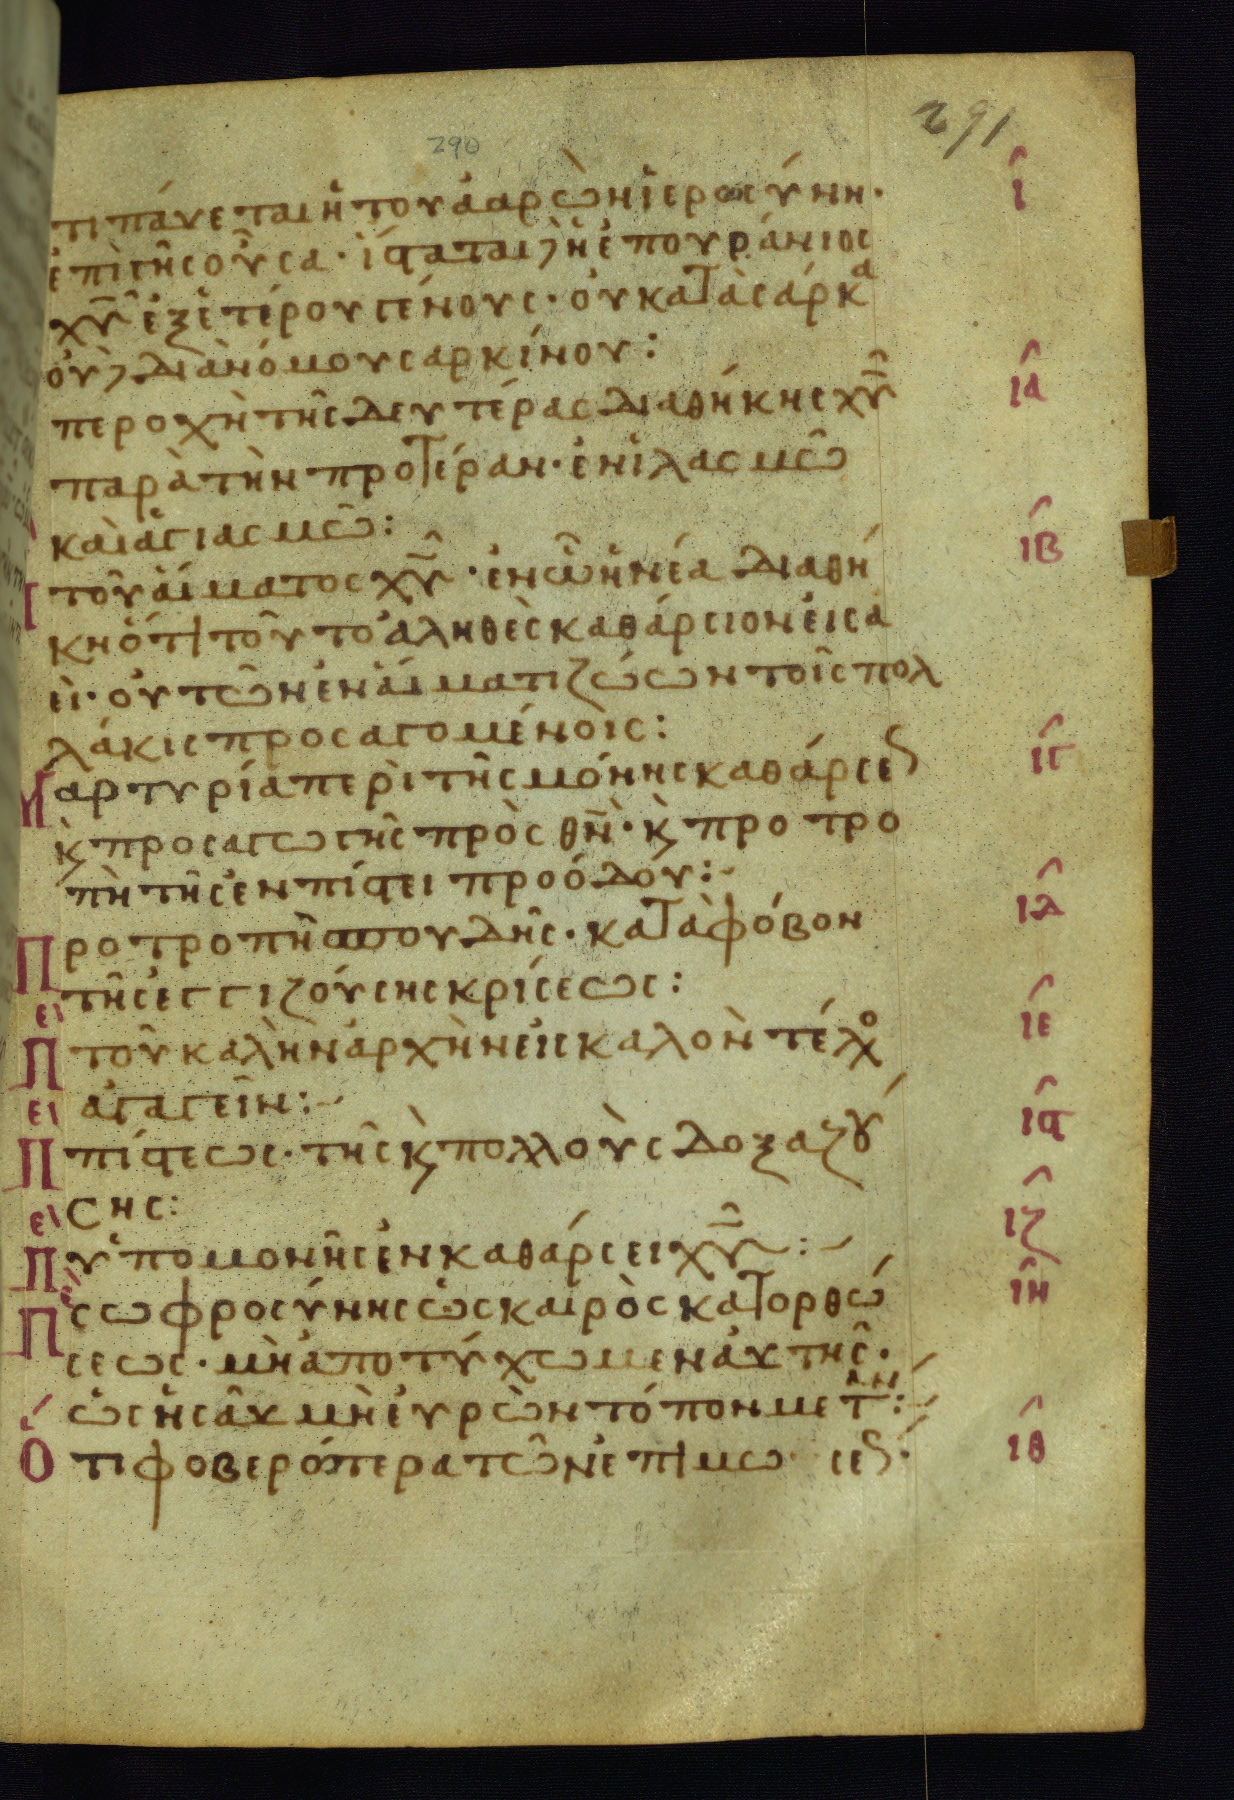 291
290
τι πάυεται ἡ τοῦ ἀαρὼν ἱερωσύνη· ι
ἐπὶ γῆς οὖσα· ἵσταται δὲ ἡ ἐπουράνιος
χῦ ἐξ ἑτέρου γένους· οὐ κατὰ σάρκα
οὐδὲ διὰ νόμου σαρκίνου:
περοχὴ τῆς δευτέρας διαθήκης χῦ ια
παρὰ τὴν προτέραν· ἐν ἱλασμῶ
καὶ ἁγιασμῶ:
τοῦ αἵματος χῦ· ἐν ὧ ἡ νέα διαθή ιβ
κη ὅτι τοῦτο ἀληθὲς καθάρσιον εἰς ἀ
εὶ· οὐ τῶν ἐν αἵματι ζώων τοῖς πολ
λάκις προσαγομένοις:
Μαρτυρία περὶ τῆς μόνης καθάρσεως ιγ
κ προσαγωγῆς πρὸς θν· κ προτρο
πὴ τῆς ἐν πίστει προόδου:
Προτροπὴ σπουδῆς· κατὰ φόβον ιδ
τῆς ἐγγιζούσης κρίσεως:
Πει τοῦ καλὴν ἀρχὴν εἰς καλὸν τέλος ιε
ἀγαγεῖν:
Πει πίστεως· τῆς κ πολλοὺς δοξαζού ις
σης:
Πει ὑπομονῆς ἐν καθάρσει χῦ: ιζ
Πε σωφροσύνης ὡς καιρὸς κατορθώ ιη
σεως· μὴ ἀποτύχωμεν αὐτῆς·
ὡς ἡσαῦ μὴ εὑρὼν τόπον μεταν:
Ὅτι φοβερότερα τῶν ἐπὶ μω σεως· ιθ